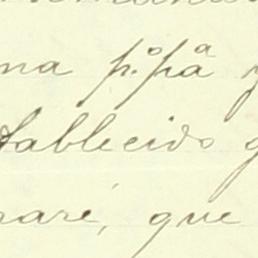 na p.º pª y
tablecido q
naré, que